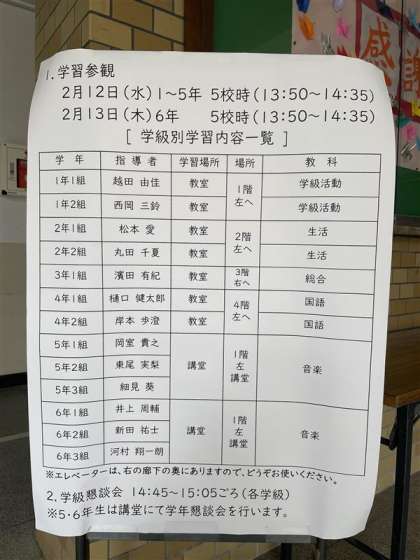 1.学習参観
2月12日(水)1〜5年 5校時(13:50〜14:35)
2月13日(木)6年 5校時(13:50〜14:35)
[ 学級別学習内容一覧 ]
学年 指導者 学習場所 場所 教科
1年1組 越田 由佳 教室 1階左へ 学級活動
1年2組 西岡 三鈴 教室 学級活動
2年1組 松本 愛 教室 2階左へ 生活
2年2組 丸田 千夏 教室 生活
3年1組 濱田 有紀 教室 3階右へ 総合
4年1組 樋口 健太郎 教室 4階左へ 国語
4年2組 岸本 歩澄 教室 国語
5年1組 岡室 貴之 講堂 1階左講堂 音楽
5年2組 東尾 実梨
5年3組 細見 葵
6年1組 井上 周輔 講堂 1階左講堂 音楽
6年2組 新田 祐士
6年3組 河村 翔一朗
※エレベーターは、右の廊下の奥にありますので、どうぞお使いください。
2.学級懇談会 14:45〜15:05ごろ(各学級)
※5・6年生は講堂にて学年懇談会を行います。
感